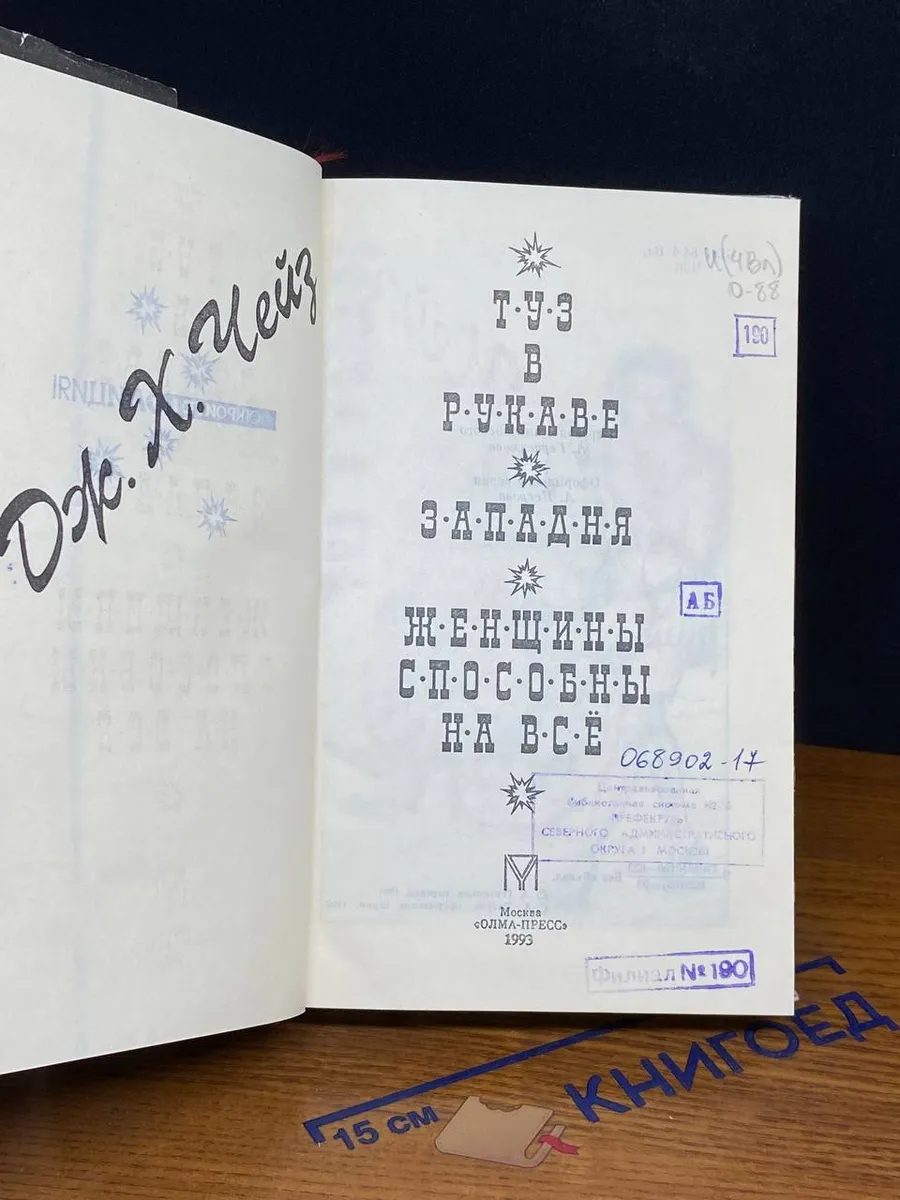 Дж. Х. Чейз
И(4Вл)
О-88
190
Т·У·З
В
Р·У·К·А·В·Е
З·А·П·А·Д·Н·Я
АБ
Ж·Е·Н·Щ·И·Н·Ы
С·П·О·С·О·Б·Н·Ы
Н·А В·С·Ё
068902-17
Централизованная
библиотечная система
ПРЕФЕКТУРЫ
СЕВЕРНОГО АДМИНИСТРАТИВНОГО
ОКРУГА Г МОСКВЫ
Москва
«ОЛМА-ПРЕСС»
1993
Филиал № 190
15 см
КНИГОЕД